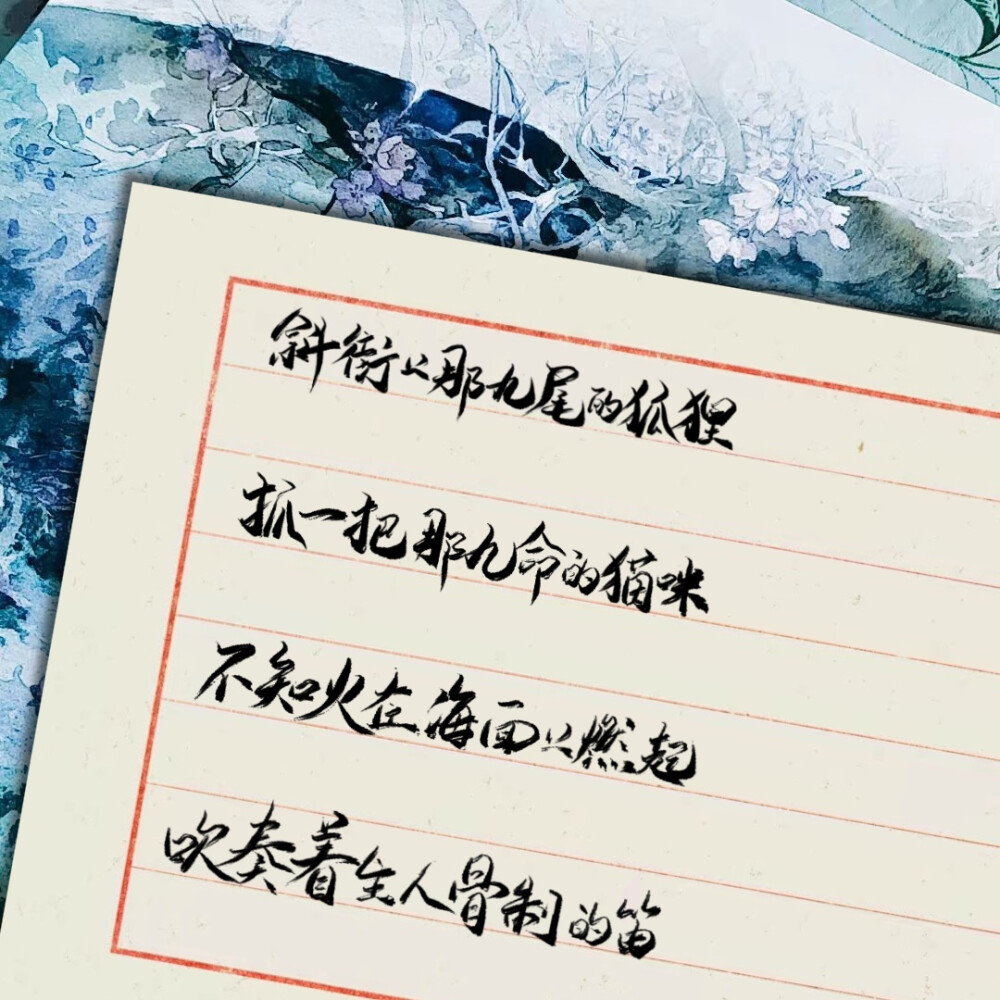 斜街上那九尾的狐狸
抓一把那九命的猫咪
不知火在海面上燃起
吹奏着生人骨制的笛